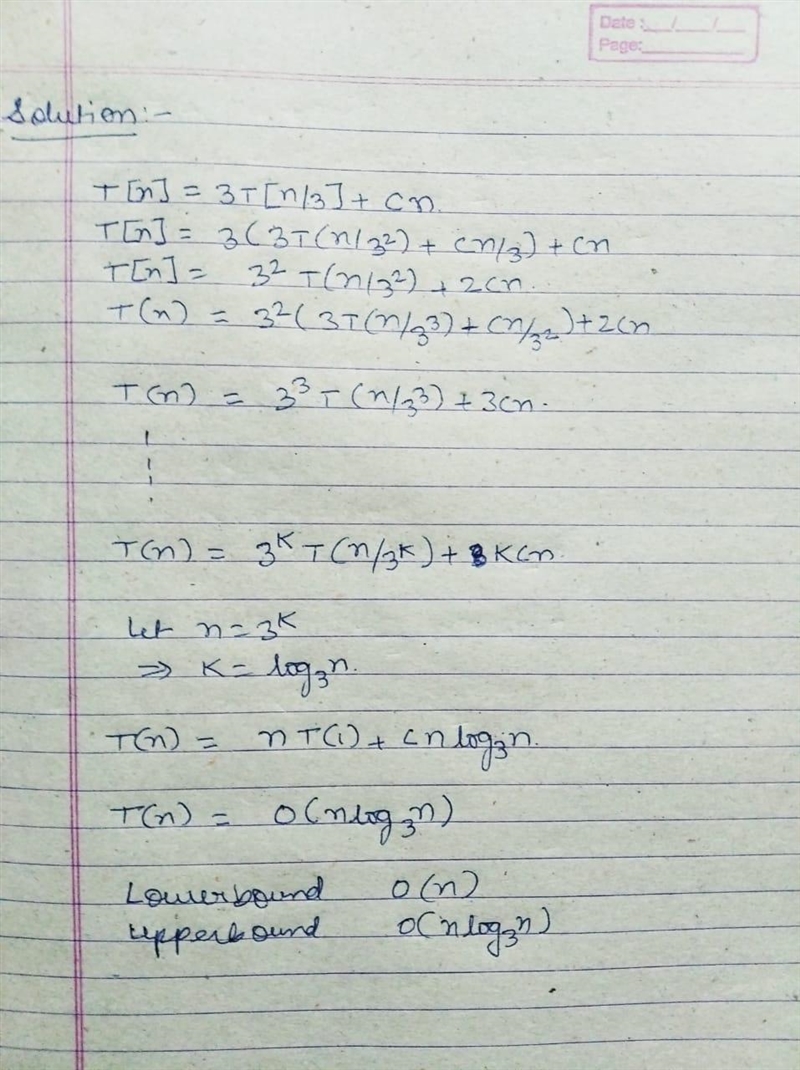 Date :__/__/__
Page:
Solution:-
T[n] = 3T[n/3] + cn.
T[n] = 3(3T(n/3²) + cn/3) + cn
T[n] = 3² T(n/3²) + 2cn.
T(n) = 3²(3T(n/3³) + cn/3²) + 2cn
T(n) = 3³ T(n/3³) + 3cn.
T(n) = 3ᴷ T(n/3ᴷ) + Kcn.
Let n = 3ᴷ
⇒ K = log₃n.
T(n) = nT(1) + cnlog₃n.
T(n) = O(nlog₃n)
Lowerbound O(n)
Upperbound O(nlog₃n)